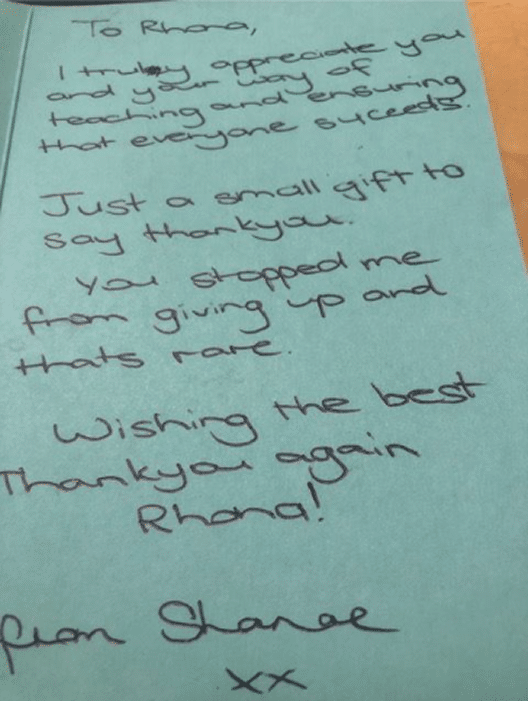 To Rhona,
I truly appreciate you
and your way of
teaching and ensuring
that everyone suceeds.
Just a small gift to
say thankyou.
You stopped me
from giving up and
thats rare.
Wishing the best
Thankyou again
Rhona!
from Shanae
xx